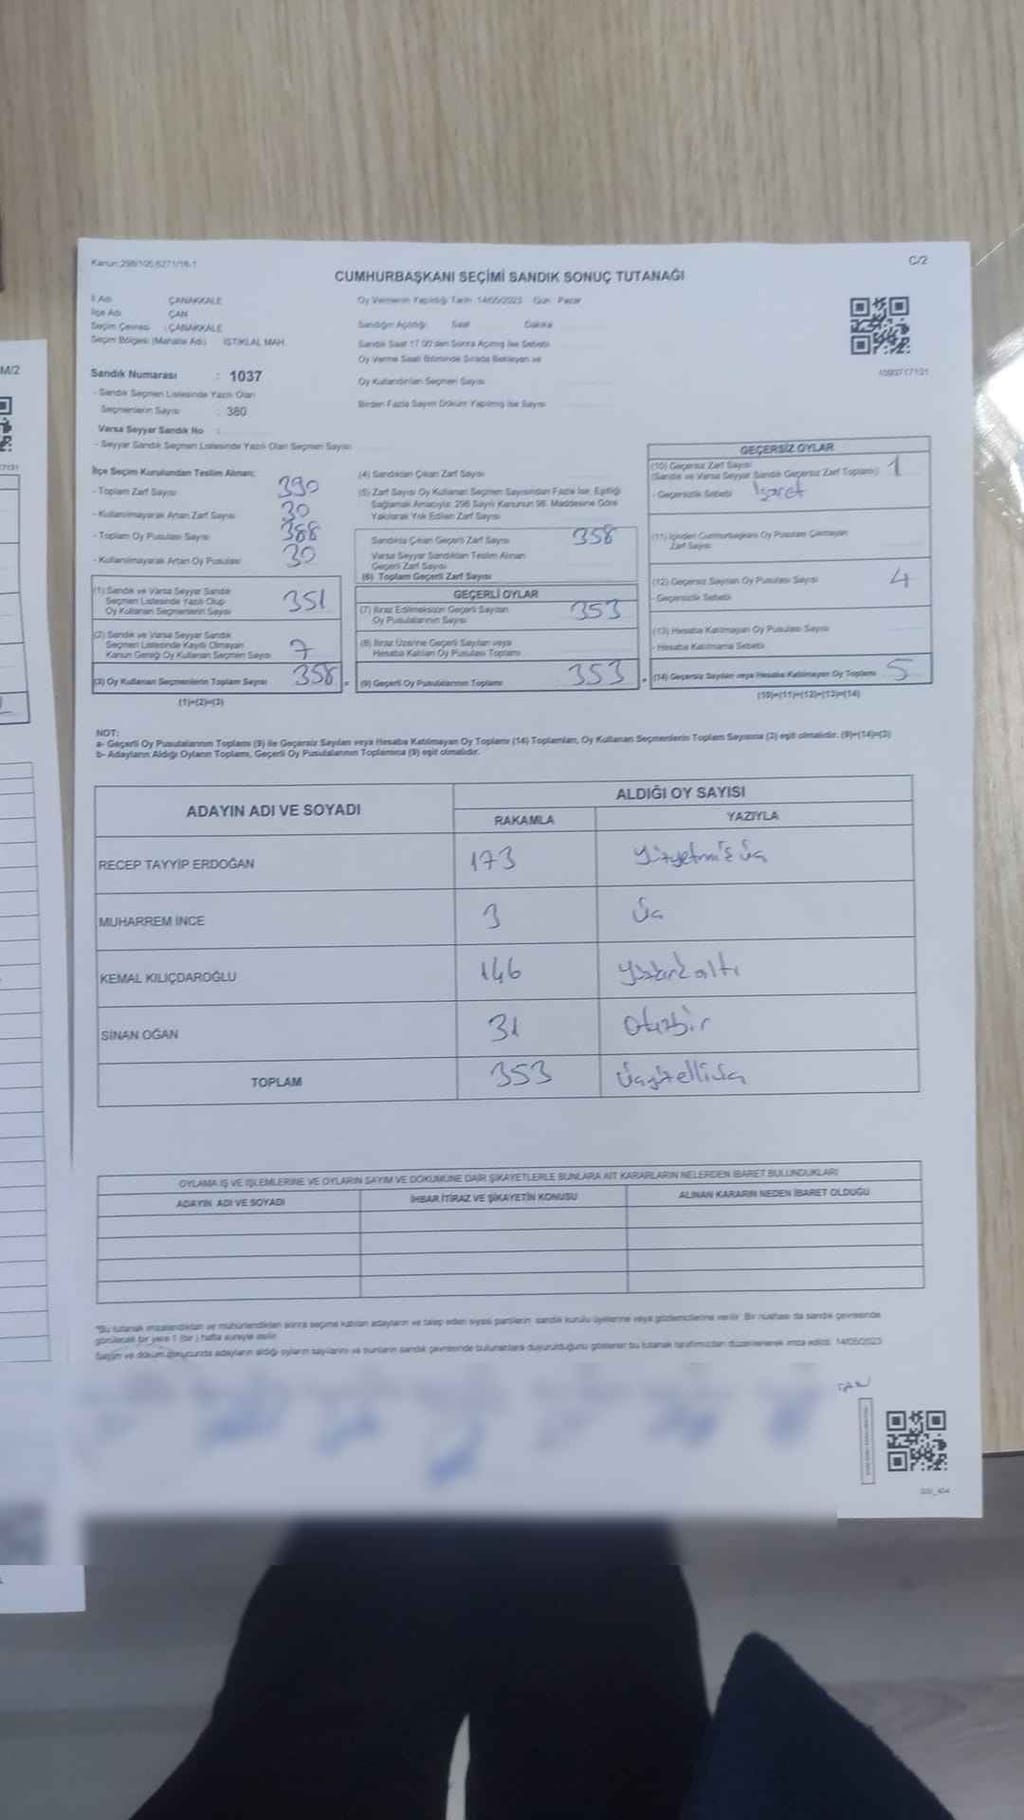 Kanun:298/105,6271/18-1
C/2
CUMHURBAŞKANI SEÇİMİ SANDIK SONUÇ TUTANAĞI
İl Adı ÇANAKKALE
İlçe Adı ÇAN
Seçim Çevresi : ÇANAKKALE
Seçim Bölgesi (Mahalle Adı) İSTİKLAL MAH.
Sandık Numarası : 1037
- Sandık Seçmen Listesinde Yazılı Olan
Seçmenlerin Sayısı : 380
Varsa Seyyar Sandık No
- Seyyar Sandık Seçmen Listesinde Yazılı Olan Seçmen Sayısı
Oy Vermenin Yapıldığı Tarih 14/05/2023 Gün Pazar
Sandığın Açıldığı Saat Dakika
Sandık Saat 17.00'den Sonra Açılmış İse Sebebi
Oy Verme Saati Bitiminde Sırada Bekleyen ve
Oy Kullandırılan Seçmen Sayısı
Birden Fazla Sayım Döküm Yapılmış İse Sayısı
1093717131
İlçe Seçim Kurulundan Teslim Alınan;
- Toplam Zarf Sayısı 390
- Kullanılmayarak Artan Zarf Sayısı 30
- Toplam Oy Pusulası Sayısı 388
- Kullanılmayarak Artan Oy Pusulası 30
(1) Sandık ve Varsa Seyyar Sandık
Seçmen Listesinde Yazılı Olup
Oy Kullanan Seçmenlerin Sayısı 351
(2) Sandık ve Varsa Seyyar Sandık
Seçmen Listesinde Kayıtlı Olmayan
Kanun Gereği Oy Kullanan Seçmen Sayısı 7
(3) Oy Kullanan Seçmenlerin Toplam Sayısı 358
(1)+(2)=(3)
(4) Sandıktan Çıkan Zarf Sayısı
(5) Zarf Sayısı Oy Kullanan Seçmen Sayısından Fazla İse, Eşitliği
Sağlamak Amacıyla; 298 Sayılı Kanunun 98. Maddesine Göre
Yakılarak Yok Edilen Zarf Sayısı
Sandıkta Çıkan Geçerli Zarf Sayısı 358
Varsa Seyyar Sandıktan Teslim Alınan
Geçerli Zarf Sayısı
(6) Toplam Geçerli Zarf Sayısı
GEÇERLİ OYLAR
(7) İtiraz Edilmeksizin Geçerli Sayılan
Oy Pusulalarının Sayısı 353
(8) İtiraz Üzerine Geçerli Sayılan veya
Hesaba Katılan Oy Pusulası Toplamı
(9) Geçerli Oy Pusulalarının Toplamı 353
GEÇERSİZ OYLAR
(10) Geçersiz Zarf Sayısı
(Sandık ve Varsa Seyyar Sandık Geçersiz Zarf Toplamı) 1
- Geçersizlik Sebebi İşaret
(11) İçinden Cumhurbaşkanı Oy Pusulası Çıkmayan
Zarf Sayısı
(12) Geçersiz Sayılan Oy Pusulası Sayısı 4
- Geçersizlik Sebebi
(13) Hesaba Katılmayan Oy Pusulası Sayısı
- Hesaba Katılmama Sebebi
(14) Geçersiz Sayılan veya Hesaba Katılmayan Oy Toplamı 5
(10)+(11)+(12)+(13)=(14)
NOT:
a- Geçerli Oy Pusulalarının Toplamı (9) ile Geçersiz Sayılan veya Hesaba Katılmayan Oy Toplamı (14) Toplamları, Oy Kullanan Seçmenlerin Toplam Sayısına (3) eşit olmalıdır. (9)+(14)=(3)
b- Adayların Aldığı Oyların Toplamı, Geçerli Oy Pusulalarının Toplamına (9) eşit olmalıdır.
ADAYIN ADI VE SOYADI
ALDIĞI OY SAYISI
RAKAMLA YAZIYLA
RECEP TAYYİP ERDOĞAN 173 Yüzyetmişüç
MUHARREM İNCE 3 Üç
KEMAL KILIÇDAROĞLU 146 Yüzkırkaltı
SİNAN OĞAN 31 Otuzbir
TOPLAM 353 Üçyüzelliüç
OYLAMA İŞ VE İŞLEMLERİNE VE OYLARIN SAYIM VE DÖKÜMÜNE DAİR ŞİKAYETLERLE BUNLARA AİT KARARLARIN NELERDEN İBARET BULUNDUKLARI
ADAYIN ADI VE SOYADI İHBAR İTİRAZ VE ŞİKAYETİN KONUSU ALINAN KARARIN NEDEN İBARET OLDUĞU
*Bu tutanak imzalandıktan ve mühürlendikten sonra seçime katılan adayların ve talep eden siyasi partilerin sandık kurulu üyelerine veya gözlemcilerine verilir. Bir nüshası da sandık çevresinde
görülecek bir yere 1 (bir) hafta süreyle asılır.
Seçim ve döküm sonucunda adayların aldığı oyların sayılarını ve bunların sandık çevresinde bulunanlara duyurulduğunu gösteren bu tutanak tarafımızdan düzenlenerek imza edildi. 14/05/2023
M/2